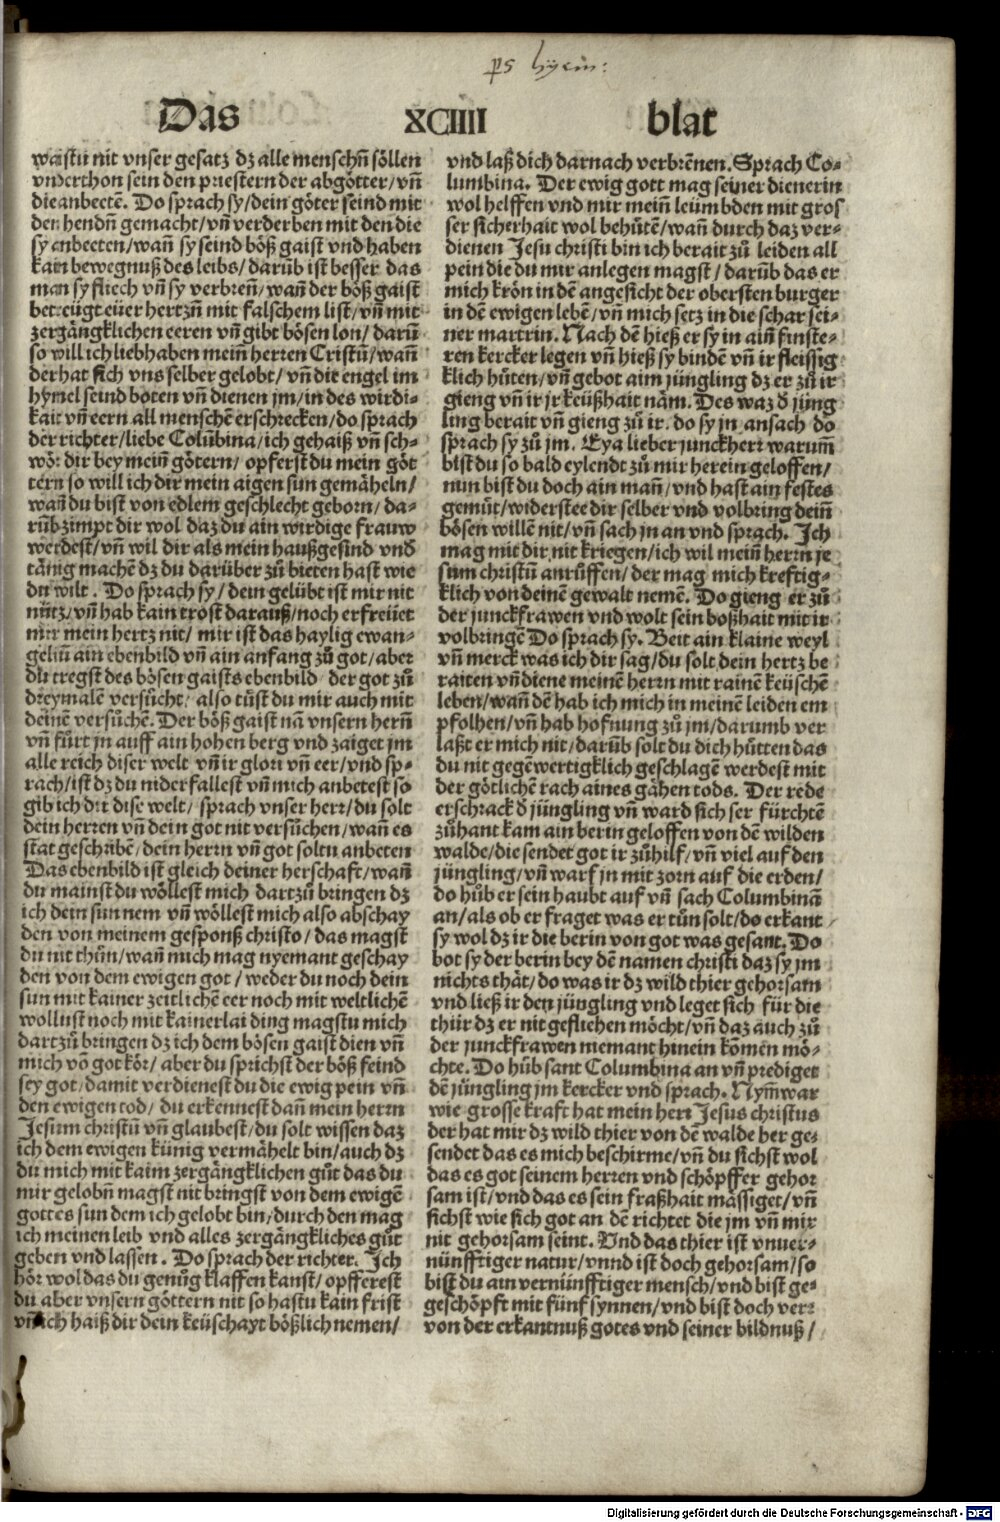 Das XCIIII blat
waistu nit vnser gesatz dz alle menschñ söllen
vnderthon sein den priestern der abgötter/vñ
die anbeetẽ. Do sprach sy/dein göter seind mit
den hendñ gemacht/vñ verderben mit den die
sy anbeeten/wañ sy seind böß gaist vnd haben
kain bewegnuß des leibs/darũb ist besser das
man sy fliech vñ sy verbreñ/wañ der böß gaist
betreügt eüer hertzñ mit falschem list/vñ mit
zergängklichen eeren vñ gibt bösen lon/darũ
so will ich liebhaben meiñ herren Cristũ/wañ
der hat sich vns selber gelobt/vñ die engel im
hymel seind boten vñ dienen jm/in des wirdi-
kait vñ eern all menschẽ erschrecken/do sprach
der richter/liebe Colũbina/ich gehaiß vñ sch-
wöꝛ dir bey meiñ götern/opferst du mein göt
tern so will ich dir mein aigen sun gemäheln/
wañ du bist von edlem geschlecht geborn/da-
rũb zimpt dir wol daz du ain wirdige frauw
werdest/vñ wil dir als mein haußgesind vnð
tänig machẽ dz du darüber zů bieten hast wie
du wilt. Do sprach sy/dein gelübt ist mir nit
nütz/vñ hab kain trost darauß/noch erfreüet
mir mein hertz nit/mir ist das haylig ewan-
geliũ ain ebenbild vñ ain anfang zů got/aber
du tregst des bösen gaists ebenbild der got zů
dreymalẽ versůcht/also tůst du mir auch mit
deinẽ versůchẽ. Der böß gaist nã vnsern herñ
vñ fůrt jn auff ain hohen berg vnd zaiget jm
alle reich diser welt vñ ir glori vñ eer/vnd sp-
rach/ist dz du niderfallest vñ mich anbetest so
gib ich dir dise welt/sprach vnser herr/du solt
dein herren vñ dein got nit versůchen/wañ es
stat geschribẽ/dein herrn vñ got soltu anbeten
Das ebenbild ist gleich deiner herschaft/wañ
du mainst du wöllest mich dartzů bringen dz
ich dein sun nem vñ wöllest mich also abschay
den von meinem gesponß christo/das magst
du nit thůn/wañ mich mag nyemant geschay
den von dem ewigen got/weder du noch dein
sun mit kainer zeitlichẽ eer noch mit weltlichẽ
wollust noch mit kainerlai ding magstu mich
dartzů bringen dz ich dem bösen gaist dien vñ
mich võ got kör/aber du sprichst der böß feind
sey got/damit verdienest du die ewig pein vñ
den ewigen tod/du erkennest dañ mein herrn
Jesum christũ vñ glaubest/du solt wissen daz
ich dem ewigen künig vermähelt bin/auch dz
du mich mit kaim zergängklichen gůt das du
mir gelobñ magst nit bringst von dem ewigẽ
gottes sun dem ich gelobt bin/durch den mag
ich meinen leib vnd alles zergängkliches gůt
geben vnd lassen. Do sprach der richter. Ich
hör wol das du genůg klaffen kanst/opfferest
du aber vnsern göttern nit so hastu kain frist
vñ ich haiß dir dein keüschayt bößlich nemen/
vnd laß dich darnach verbrẽnen. Sprach Co-
lumbina. Der ewig gott mag seiner dienerin
wol helffen vnd mir meiñ leümbden mit gros
ser sicherhait wol behütẽ/wañ durch daz ver-
dienen Jesu christi bin ich berait zů leiden all
pein die du mir anlegen magst/darũb das er
mich krön in dẽ angesicht der obersten burger
in dẽ ewigen lebẽ/vñ mich setz in die schar sei-
ner martrin. Nach dẽ hieß er sy in aiñ finste-
ren kercker legen vñ hieß sy bindẽ vñ ir fleissig
klich hüten/vñ gebot aim jüngling dz er zů ir
gieng vñ ir jr keüßhait näm. Des waz ð jüng
ling berait vñ gieng zů ir. do sy jn ansach do
sprach sy zů jm. Eya lieber junckherr warum̃
bist du so bald eylendt zů mir herein geloffen/
nun bist du doch ain mañ/vnd hast ain festes
gemüt/widerstee dir selber vnd volbring deiñ
bösen willẽ nit/vñ sach jn an vnd sprach. Ich
mag mit dir nit kriegen/ich wil meiñ herrn je
sum christũ anrůffen/der mag mich kreftig-
klich von deinẽ gewalt nemẽ. Do gieng er zů
der junckfrawen vnd wolt sein boßhait mit ir
volbringẽ Do sprach sy. Beit ain klaine weyl
vñ merck was ich dir sag/du solt dein hertz be
raiten vñ diene meinẽ herrn mit rainẽ keüschẽ
leben/wañ dẽ hab ich mich in meinẽ leiden em
pfolhen/vñ hab hofnung zů jm/darumb ver
laßt er mich nit/darũb solt du dich hütten das
du nit gegẽwertigklich geschlagẽ werdest mit
der götlichẽ rach aines gähen tods. Der rede
erschrack ð jüngling vñ ward sich ser fürchtẽ
zůhant kam ain berin geloffen von dẽ wilden
walde/die sendet got ir zůhilf/vñ viel auf den
jüngling/vñ warf jn mit zorn auf die erden/
do hůb er sein haubt auf vñ sach Columbinã
an/als ob er fraget was er tůn solt/do erkant
sy wol dz ir die berin von got was gesant. Do
bot sy der berin bey dẽ namen christi daz sy jm
nichts thät/do was ir dz wild thier gehorsam
vnd ließ ir den jüngling vnd leget sich für die
thür dz er nit gefliehen möcht/vñ daz auch zů
der junckfrawen niemant hinein kõmen mö-
chte. Do hůb sant Columbina an vñ prediget
dẽ jüngling jm kercker vnd sprach. Nym̃war
wie grosse kraft hat mein herr Jesus christus
der hat mir dz wild thier von dẽ walde her ge-
sendet das es mich beschirme/vñ du sichst wol
das es got seinem herren vnd schöpffer gehor
sam ist/vnd das es sein fraßhait mässiget/vñ
sichst wie sich got an dẽ richtet die jm vñ mir
nit gehorsam seint. Vnd das thier ist vnuer-
nünfftiger natur/vnnd ist doch gehorsam/so
bist du ain vernünfftiger mensch/vnd bist ge-
geschöpft mit fünf synnen/vnd bist doch verꝛ
von der erkantnuß gotes vnd seiner bildnuß/
Digitalisierung gefördert durch die Deutsche Forschungsgemeinschaft - DFG